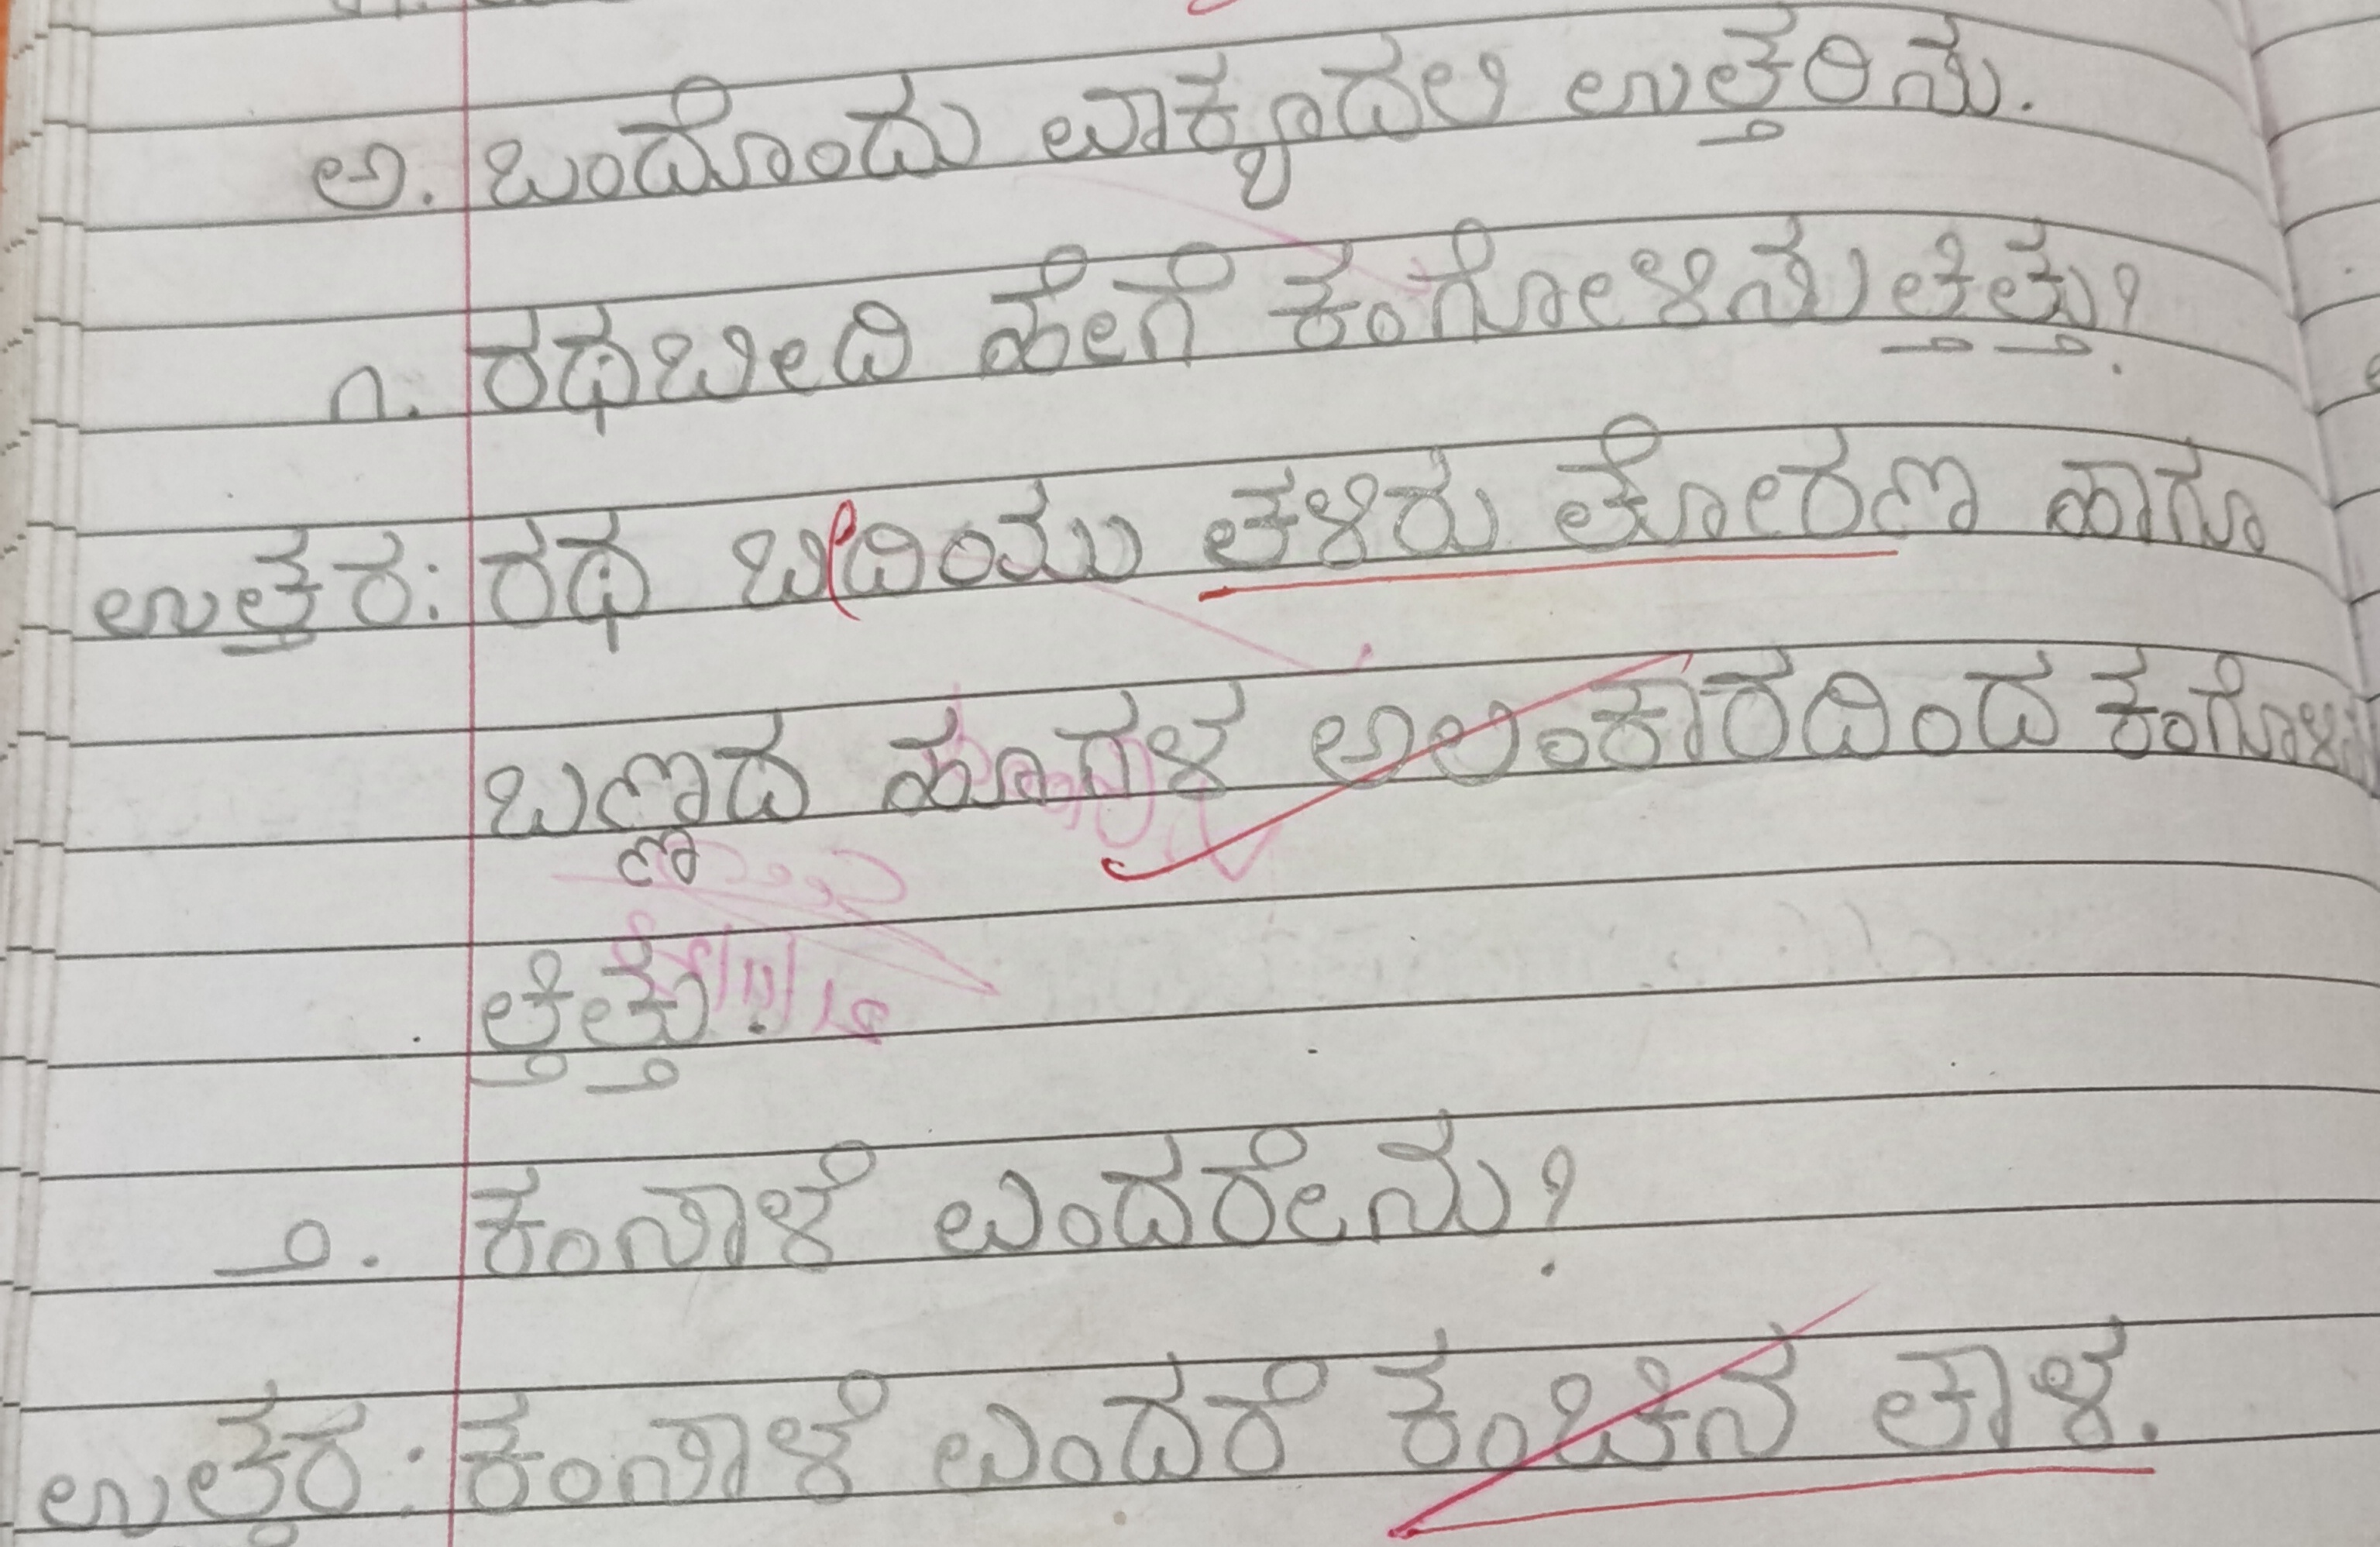 ಅ. ಒಂದೊಂದು ವಾಕ್ಯದಲಿ ಉತ್ತರಿಸು.
೧. ರಥಬೀದಿ ಹೇಗೆ ಕಂಗೋಳಿಸುತ್ತಿತ್ತು?
ಉತ್ತರ: ರಥ ಬೀದಿಯು ತಳಿರು ತೋರಣ ಹಾಗೂ
ಬಣ್ಣದ ಹೂಗಳ ಅಲಂಕಾರದಿಂದ ಕಂಗೊಳಿಸು
ತ್ತಿತ್ತು.
೨. ಕಂಸಾಳೆ ಎಂದರೇನು?
ಉತ್ತರ: ಕಂಸಾಳೆ ಎಂದರೆ ಕಂಚಿನ ತಾಳ.